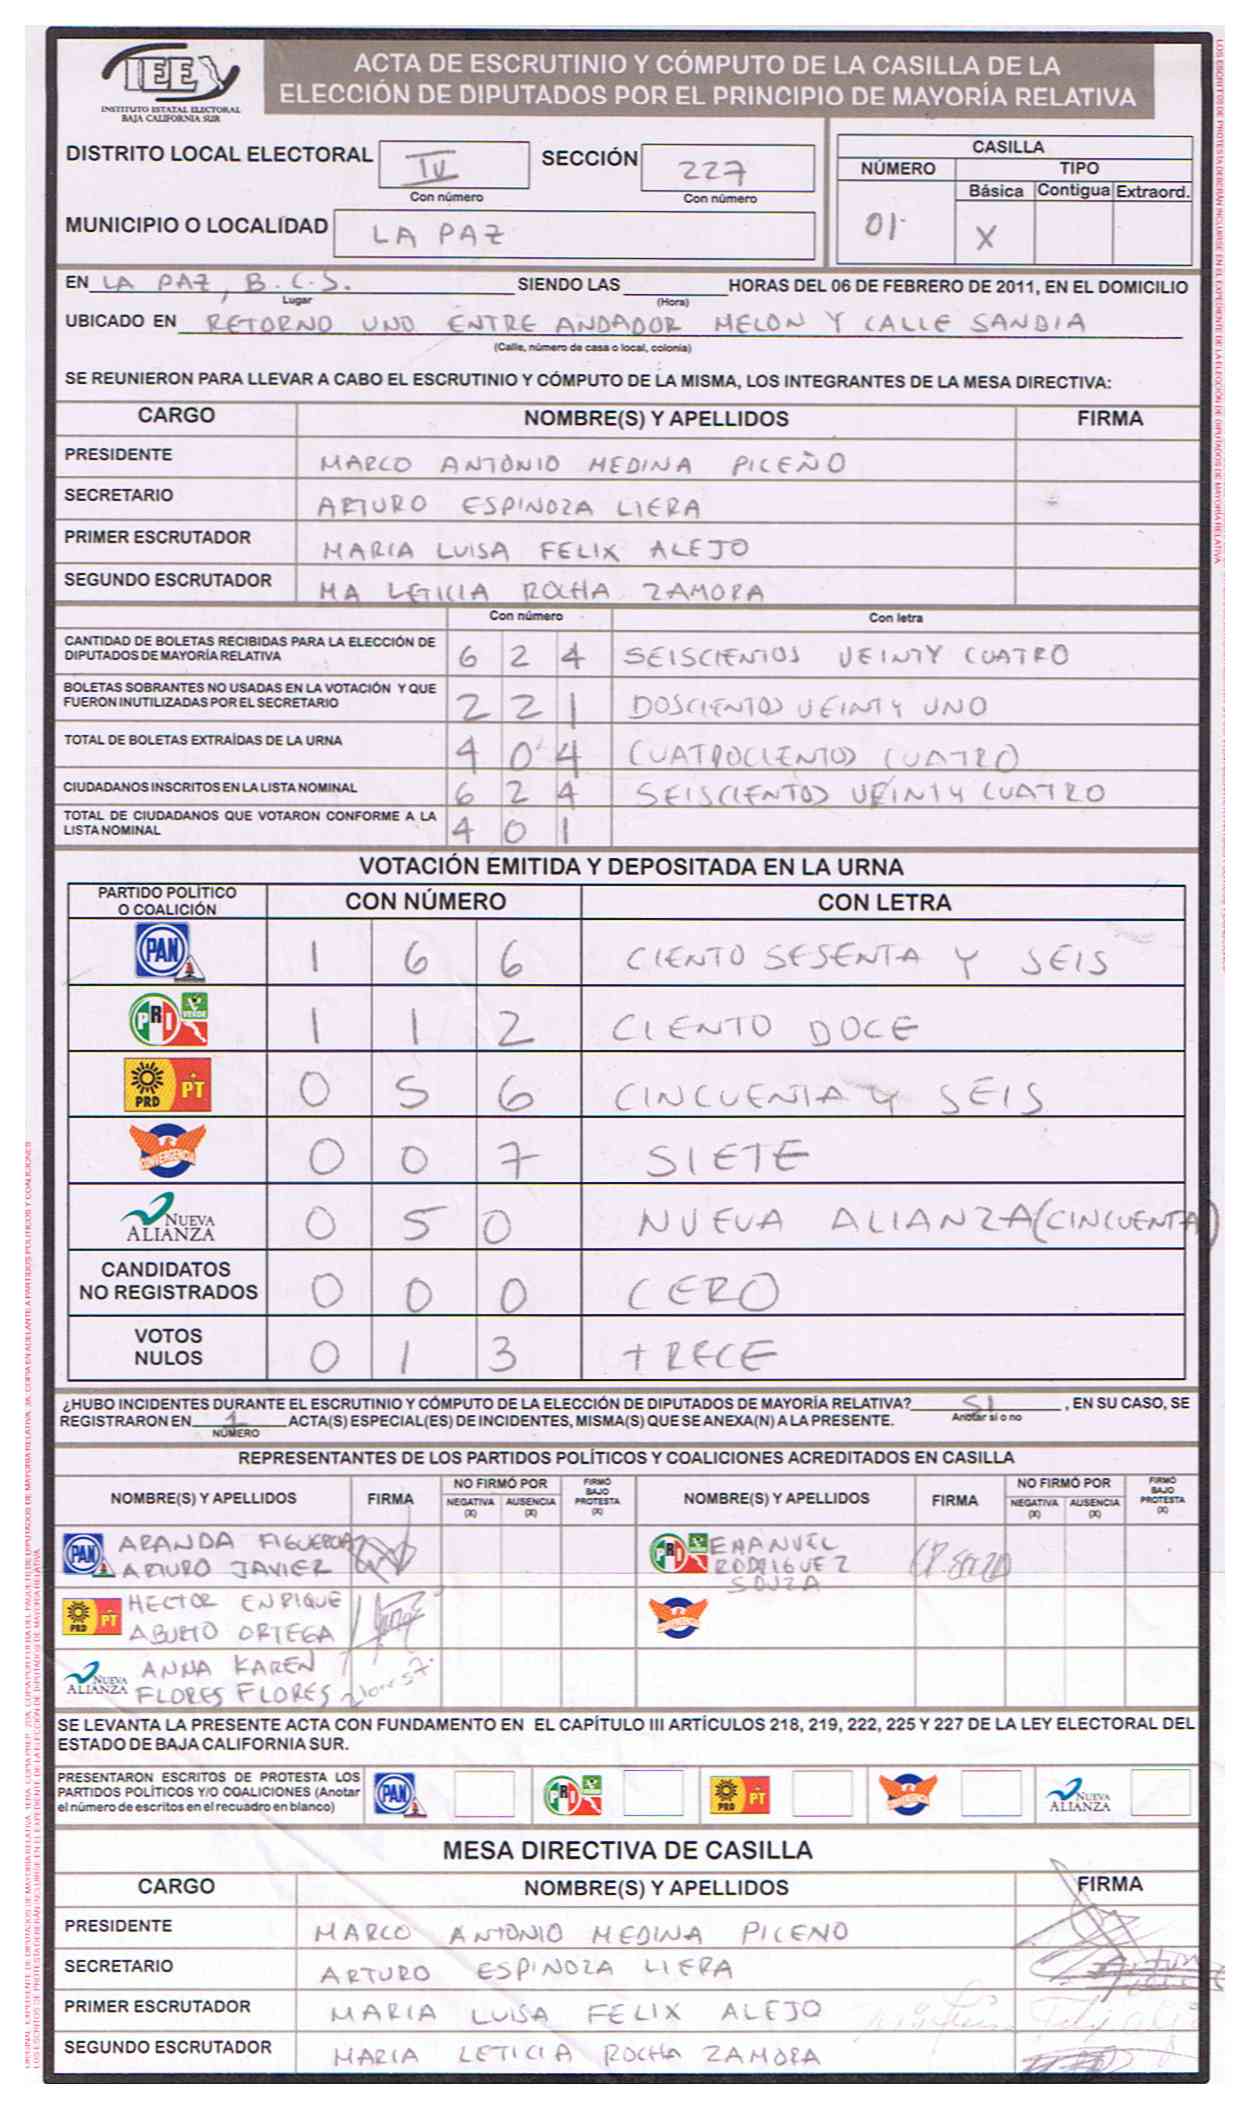 IEE
INSTITUTO ESTATAL ELECTORAL
BAJA CALIFORNIA SUR
ACTA DE ESCRUTINIO Y CÓMPUTO DE LA CASILLA DE LA
ELECCIÓN DE DIPUTADOS POR EL PRINCIPIO DE MAYORÍA RELATIVA
DISTRITO LOCAL ELECTORAL IV SECCIÓN 227
Con número Con número
MUNICIPIO O LOCALIDAD LA PAZ
CASILLA
NÚMERO TIPO
Básica Contigua Extraord.
01 X
EN LA PAZ, B.C.S. SIENDO LAS HORAS DEL 06 DE FEBRERO DE 2011, EN EL DOMICILIO
Lugar (Hora)
UBICADO EN RETORNO UNO ENTRE ANDADOR MELON Y CALLE SANDIA
(Calle, número de casa o local, colonia)
SE REUNIERON PARA LLEVAR A CABO EL ESCRUTINIO Y CÓMPUTO DE LA MISMA, LOS INTEGRANTES DE LA MESA DIRECTIVA:
CARGO NOMBRE(S) Y APELLIDOS FIRMA
PRESIDENTE MARCO ANTONIO MEDINA PICEÑO
SECRETARIO ARTURO ESPINOZA LIERA
PRIMER ESCRUTADOR MARIA LUISA FELIX ALEJO
SEGUNDO ESCRUTADOR MA LETICIA ROCHA ZAMORA
Con número Con letra
CANTIDAD DE BOLETAS RECIBIDAS PARA LA ELECCIÓN DE
DIPUTADOS DE MAYORÍA RELATIVA 6 2 4 SEISCIENTOS VEINTY CUATRO
BOLETAS SOBRANTES NO USADAS EN LA VOTACIÓN Y QUE
FUERON INUTILIZADAS POR EL SECRETARIO 2 2 1 DOSCIENTOS VEINTY UNO
TOTAL DE BOLETAS EXTRAÍDAS DE LA URNA 4 0 4 CUATROCIENTOS CUATRO
CIUDADANOS INSCRITOS EN LA LISTA NOMINAL 6 2 4 SEISCIENTOS VEINTY CUATRO
TOTAL DE CIUDADANOS QUE VOTARON CONFORME A LA
LISTA NOMINAL 4 0 1
VOTACIÓN EMITIDA Y DEPOSITADA EN LA URNA
PARTIDO POLÍTICO
O COALICIÓN CON NÚMERO CON LETRA
PAN 1 6 6 CIENTO SESENTA Y SEIS
PRI VERDE 1 1 2 CIENTO DOCE
PRD PT 0 5 6 CINCUENTA Y SEIS
CONVERGENCIA 0 0 7 SIETE
NUEVA ALIANZA 0 5 0 NUEVA ALIANZA (CINCUENTA)
CANDIDATOS
NO REGISTRADOS 0 0 0 CERO
VOTOS
NULOS 0 1 3 TRECE
¿HUBO INCIDENTES DURANTE EL ESCRUTINIO Y CÓMPUTO DE LA ELECCIÓN DE DIPUTADOS DE MAYORÍA RELATIVA? SI, EN SU CASO, SE
Anotar si o no
REGISTRARON EN 1 ACTA(S) ESPECIAL(ES) DE INCIDENTES, MISMA(S) QUE SE ANEXA(N) A LA PRESENTE.
NÚMERO
REPRESENTANTES DE LOS PARTIDOS POLÍTICOS Y COALICIONES ACREDITADOS EN CASILLA
NOMBRE(S) Y APELLIDOS FIRMA NO FIRMÓ POR NEGATIVA (X) AUSENCIA (X) FIRMÓ BAJO PROTESTA (X) NOMBRE(S) Y APELLIDOS FIRMA NO FIRMÓ POR NEGATIVA (X) AUSENCIA (X) FIRMÓ BAJO PROTESTA (X)
PAN ARANDA FIGUEROA
ARTURO JAVIER
PRI EMANUEL
RODRIGUEZ
SOUZA
PRD PT HECTOR ENRIQUE
ABURTO ORTEGA
CONVERGENCIA
NUEVA ALIANZA ANNA KAREN
FLORES FLORES
SE LEVANTA LA PRESENTE ACTA CON FUNDAMENTO EN EL CAPÍTULO III ARTÍCULOS 218, 219, 222, 225 Y 227 DE LA LEY ELECTORAL DEL
ESTADO DE BAJA CALIFORNIA SUR.
PRESENTARON ESCRITOS DE PROTESTA LOS
PARTIDOS POLÍTICOS Y/O COALICIONES (Anotar
el número de escritos en el recuadro en blanco)
PAN PRI PRD PT CONVERGENCIA NUEVA ALIANZA
MESA DIRECTIVA DE CASILLA
CARGO NOMBRE(S) Y APELLIDOS FIRMA
PRESIDENTE MARCO ANTONIO MEDINA PICENO
SECRETARIO ARTURO ESPINOZA LIERA
PRIMER ESCRUTADOR MARIA LUISA FELIX ALEJO
SEGUNDO ESCRUTADOR MARIA LETICIA ROCHA ZAMORA